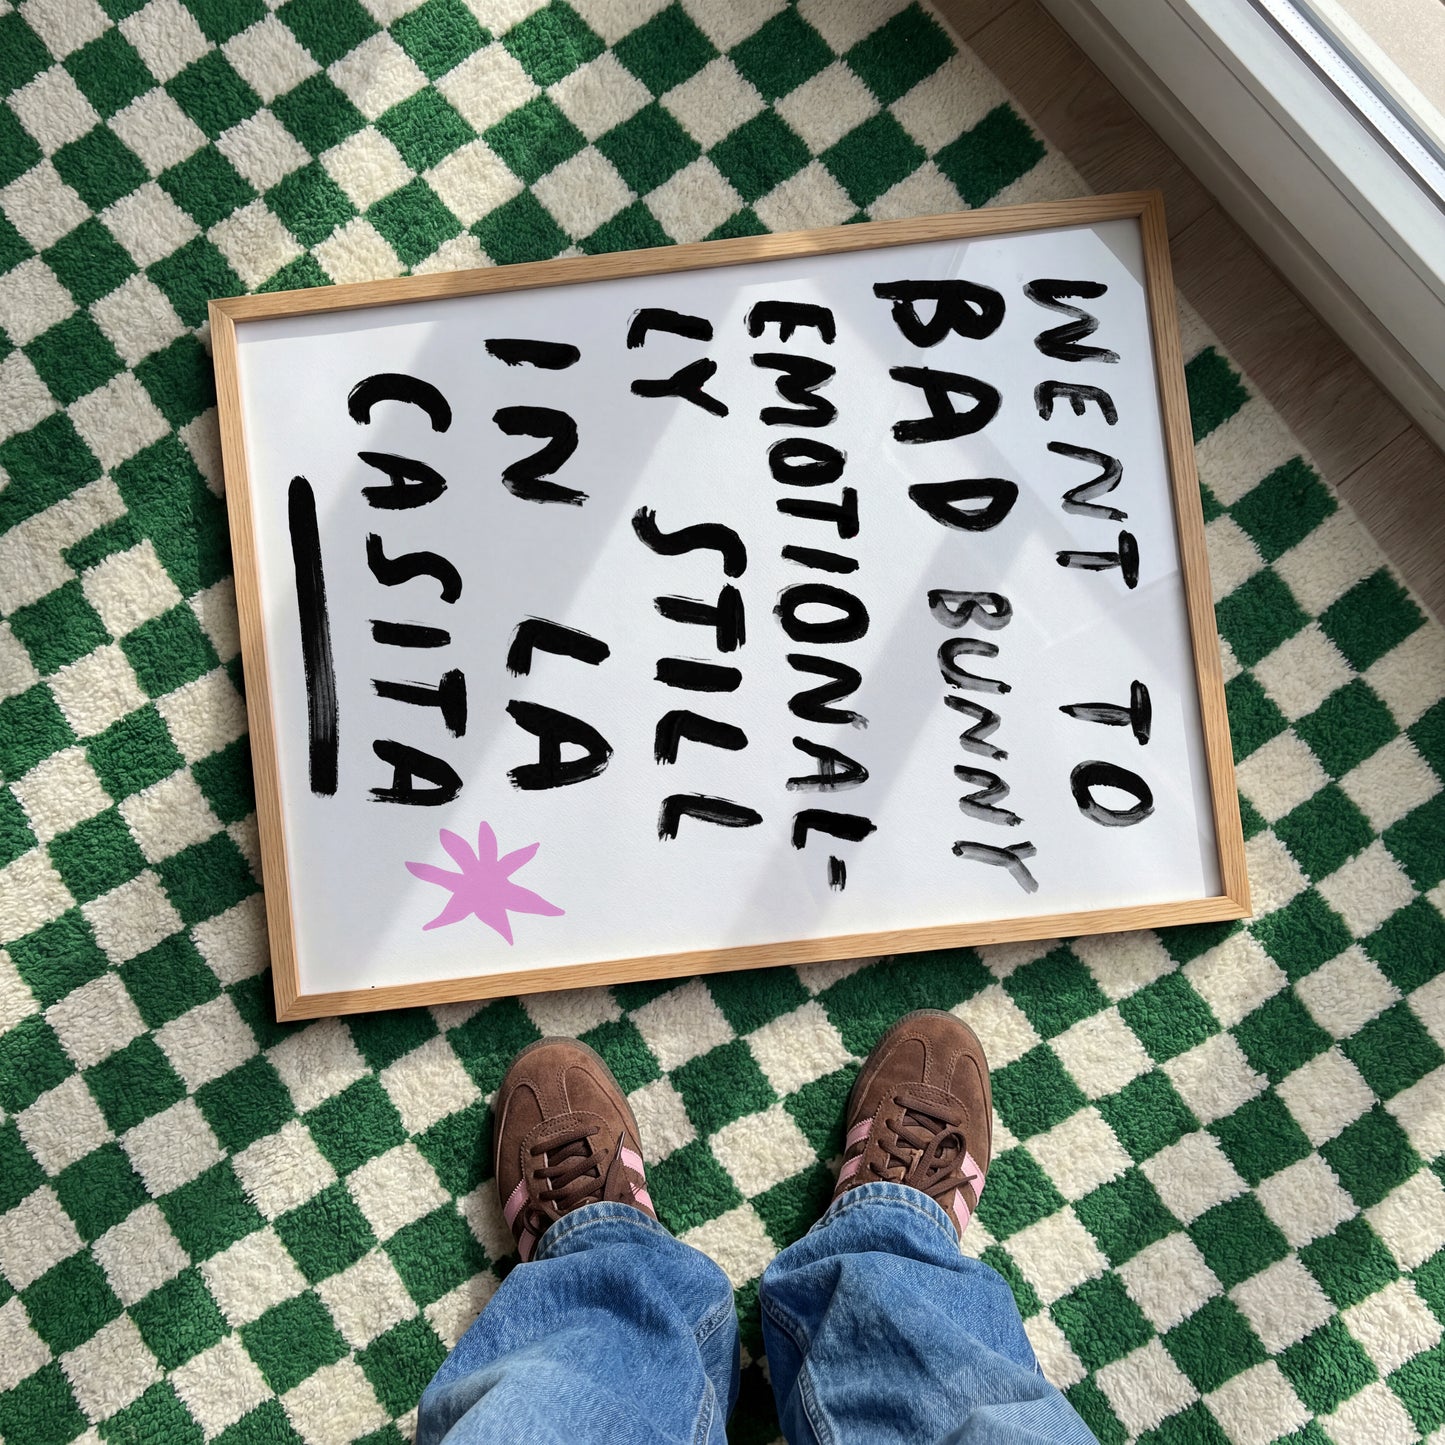 WENT TO
BAD BUNNY
EMOTIONAL-
LY STILL
IN LA
CASITA